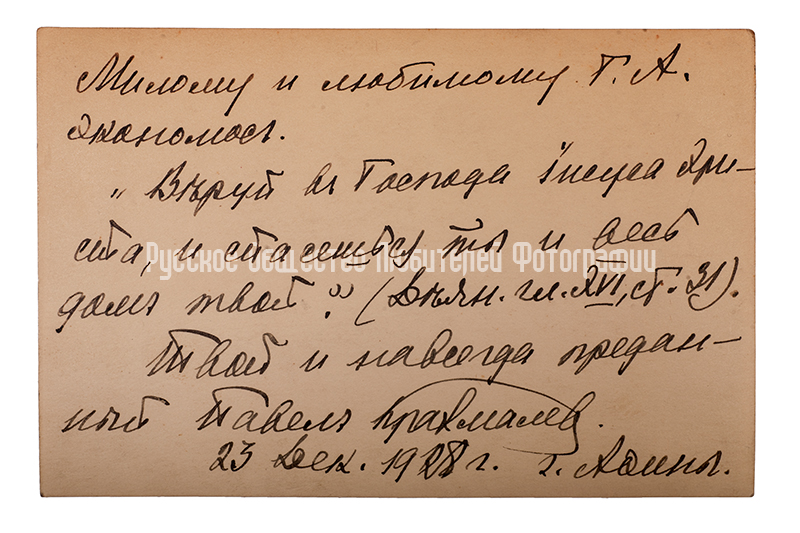 Милому и любимому Г. А.
Экономосъ.
„Вѣруй въ Господа Іисуса Хри-
ста, и спасешься ты и весь
Русское общество Любителей Фотографии
домъ твой.” (Дѣян. гл. XVI, ст. 31).
Твой и навсегда предан-
ный Павелъ Крахмалев.
23 Дек. 1928 г. г. Аѳины.